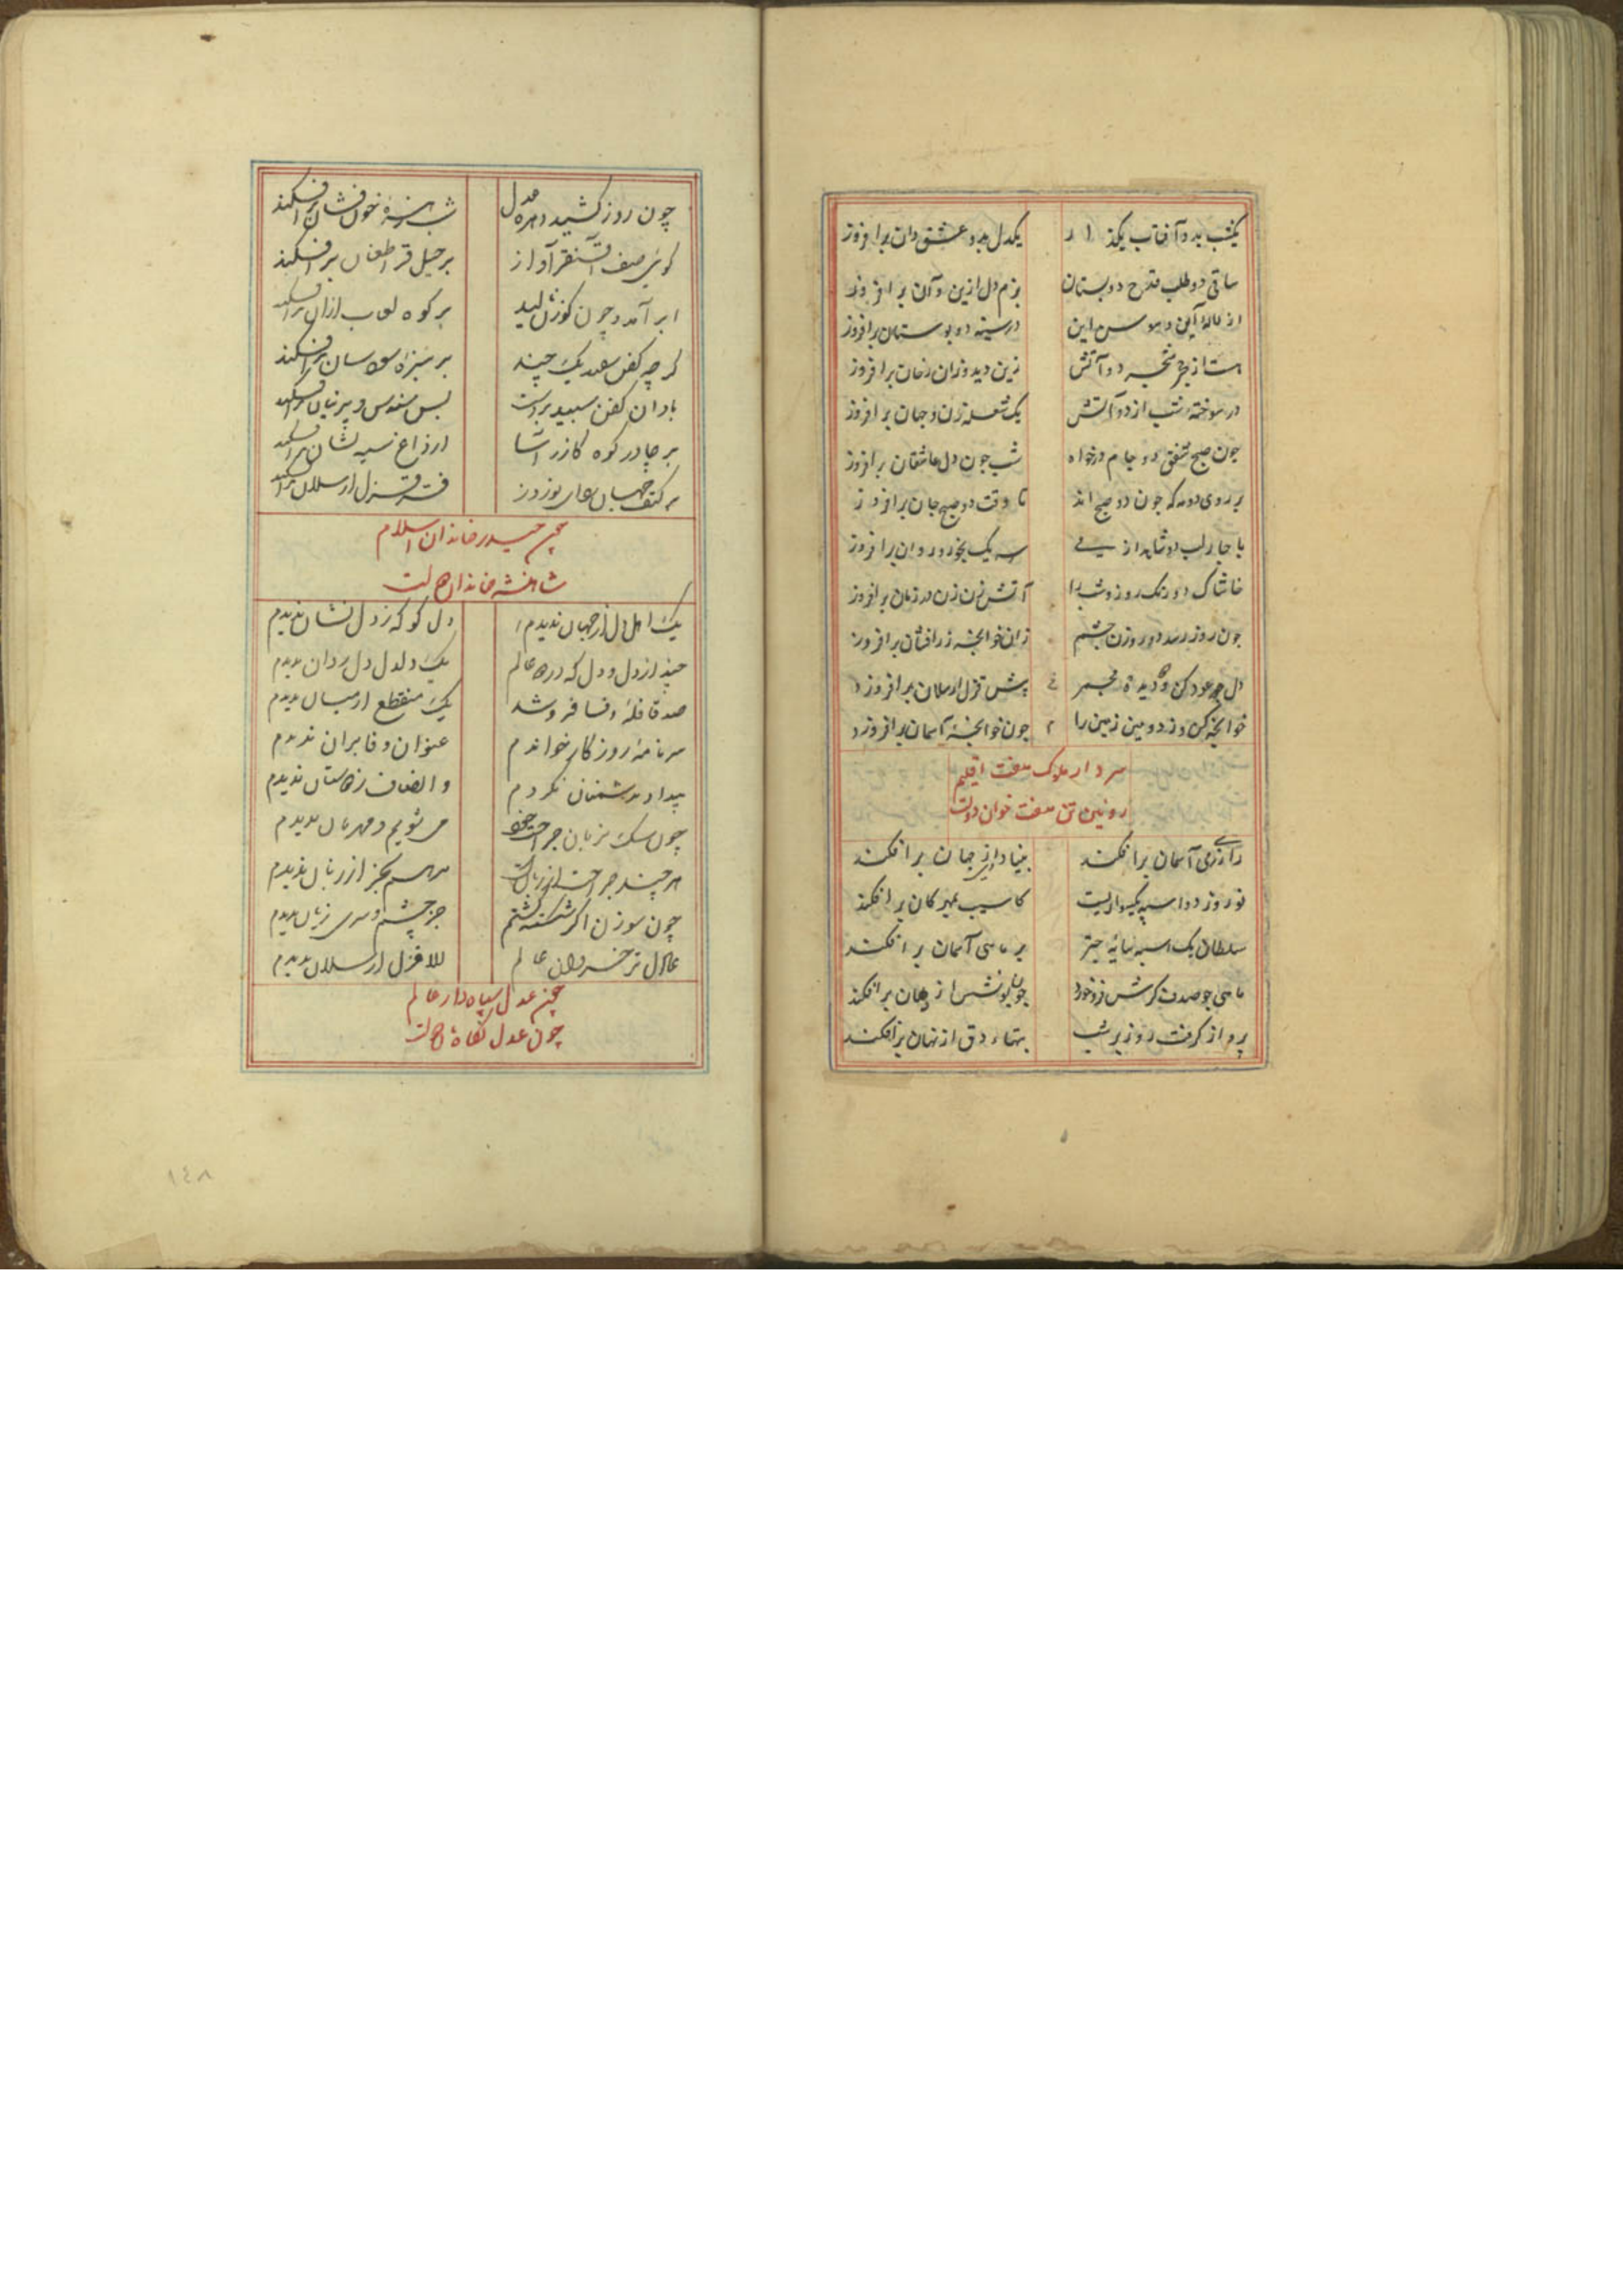 یکشب بدو آفتاب بگذار یکدل بدو عشق دان برافروز
ساقی دو طلب قدح دو بستان بزم دل ازین و آن برافروز
از لاله آن و سوسن این در سینه دو بوستان برافروز
هست از قدح و پنجه دو آتش زین دیده وزان رخان برافروز
در سوخته شب از دو آتش یک شعله زن و جهان برافروز
چون صبح شفق دو جام درخواه شب چون دل عاشقان برافروز
بر روی دو مه که چون دو صبح اند تا وقت دو صبح جان برافروز
با چار لب دو شاهد از می سه یک بخور و روان برافروز
خاشاک دو رنگ روز و شب را آتش زن زن و در زمان برافروز
چون روز رسد دو روزن چشم زان خوانچه زرفشان برافروز
دل عود کن و دیده مجمر پیش قزل ارسلان برافروز
خوانچه کن و زمین را چون خوانچه آسمان برافروز
سردار ملوک هفت اقلیم
رویین تن هفت خوان دولت
رازی زمی آسمان برافکند بنیاد جهان برافکند
نوروز دو اسبه یکسواریست کاسیب بمهرکان برافکند
سلطان یک اسبه سایه چتر بر ماهی آسمان برافکند
ماهی چو صدف گرش فرو خورد چون یونسش از دهان برافکند
پرواز گرفت روز بر شب تهماء دق از نهان برافکند
چون روز کشید دهره عدل شب زهره خون فشان برافکند
گوئی صف آقسنقر آواز بر خیل قراطغان برافکند
ابر آمد و چون گوزن نالید بر کوه لعاب ازان برافکند
گرچه کفن سفید یک چند بر سبزه سان برافکند
باران کفن سپید برداشت بس سندس و پرنیان برافکند
بر چادر کوه گازر آسا از داغ سیه نشان برافکند
بر کتف جهان ردای نوروز فر قزل ارسلان برافکند
حیدر خاندان اسلام
شاهنشه خاندان دولت
یک اهل دل از جهان ندیدم دل کو که ز دل نشان ندیدم
چند از دل و دل که در دو عالم یک دلدل دل روان ندیدم
صد قافله وفا فرو شد یک منقطع از میان ندیدم
سرنامه روزگار خواندم عنوان وفا بر آن ندیدم
بیداد به دشمنان نکردم و انصاف ز دوستان ندیدم
چون سگ بزبان جراحت خود می شویم و مهربان ندیدم
هرچند جراحت از زبانست مرهم بجز از زبان ندیدم
چون سوزن اگر شکسته گشتم جز چشم و سری زیان ندیدم
عادل تر خسروان عالم الا قزل ارسلان ندیدم
عدل سپاه دار عالم
چون عدل پناه دولت
۱٤۸